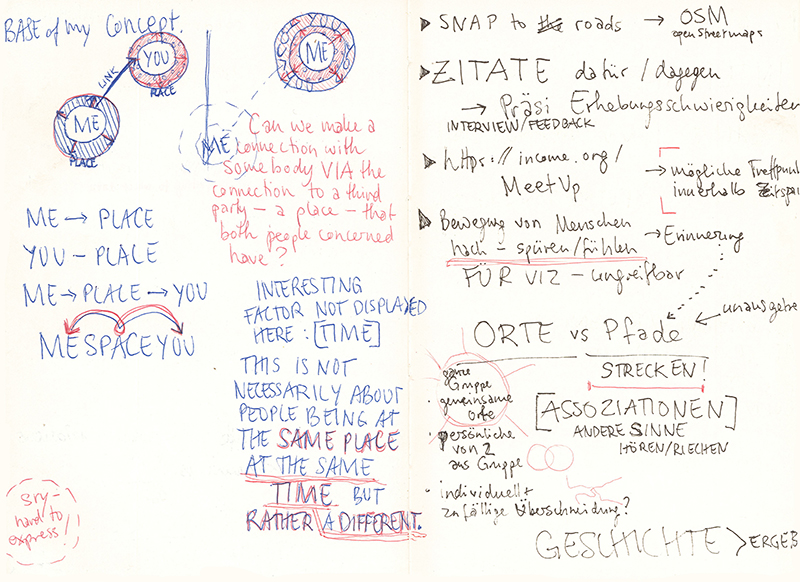 BASE of my Concept.
YOU
LINK
PLACE
ME
PLACE
ME
ME
Can we make a
connection with
somebody VIA the
connection to a third
party – a place – that
both people concerned
have?
ME → PLACE
YOU – PLACE
ME → PLACE → YOU
MESPACEYOU
INTERESTING
FACTOR NOT DISPLAYED
HERE: [TIME]
THIS IS NOT
NECESSARILY ABOUT
PEOPLE BEING AT
THE SAME PLACE
AT THE SAME
TIME BUT
RATHER A DIFFERENT.
sry –
hard to
express!
SNAP to roads → OSM
openstreetmaps
ZITATE dafür / dagegen
→ Präsi Erhebungsschwierigkeiten
INTERVIEW/FEEDBACK
https://income.org/
MeetUp
→ mögliche Treffpunk
innerhalb Zeitspan
Bewegung von Menschen
nach – spüren/fühlen
→ Erinnerung
FÜR VIZ – ungreifbar
ORTE vs Pfade
← unausgefüh
STRECKEN!
ganze
Gruppe
gemeinsame
Orte
[ASSOZIATIONEN]
ANDERE SINNE
HÖREN/RIECHEN
persönliche
von 2
aus Gruppe
individuell +
zufällige Überschneidung?
GESCHICHTE > ERGEB